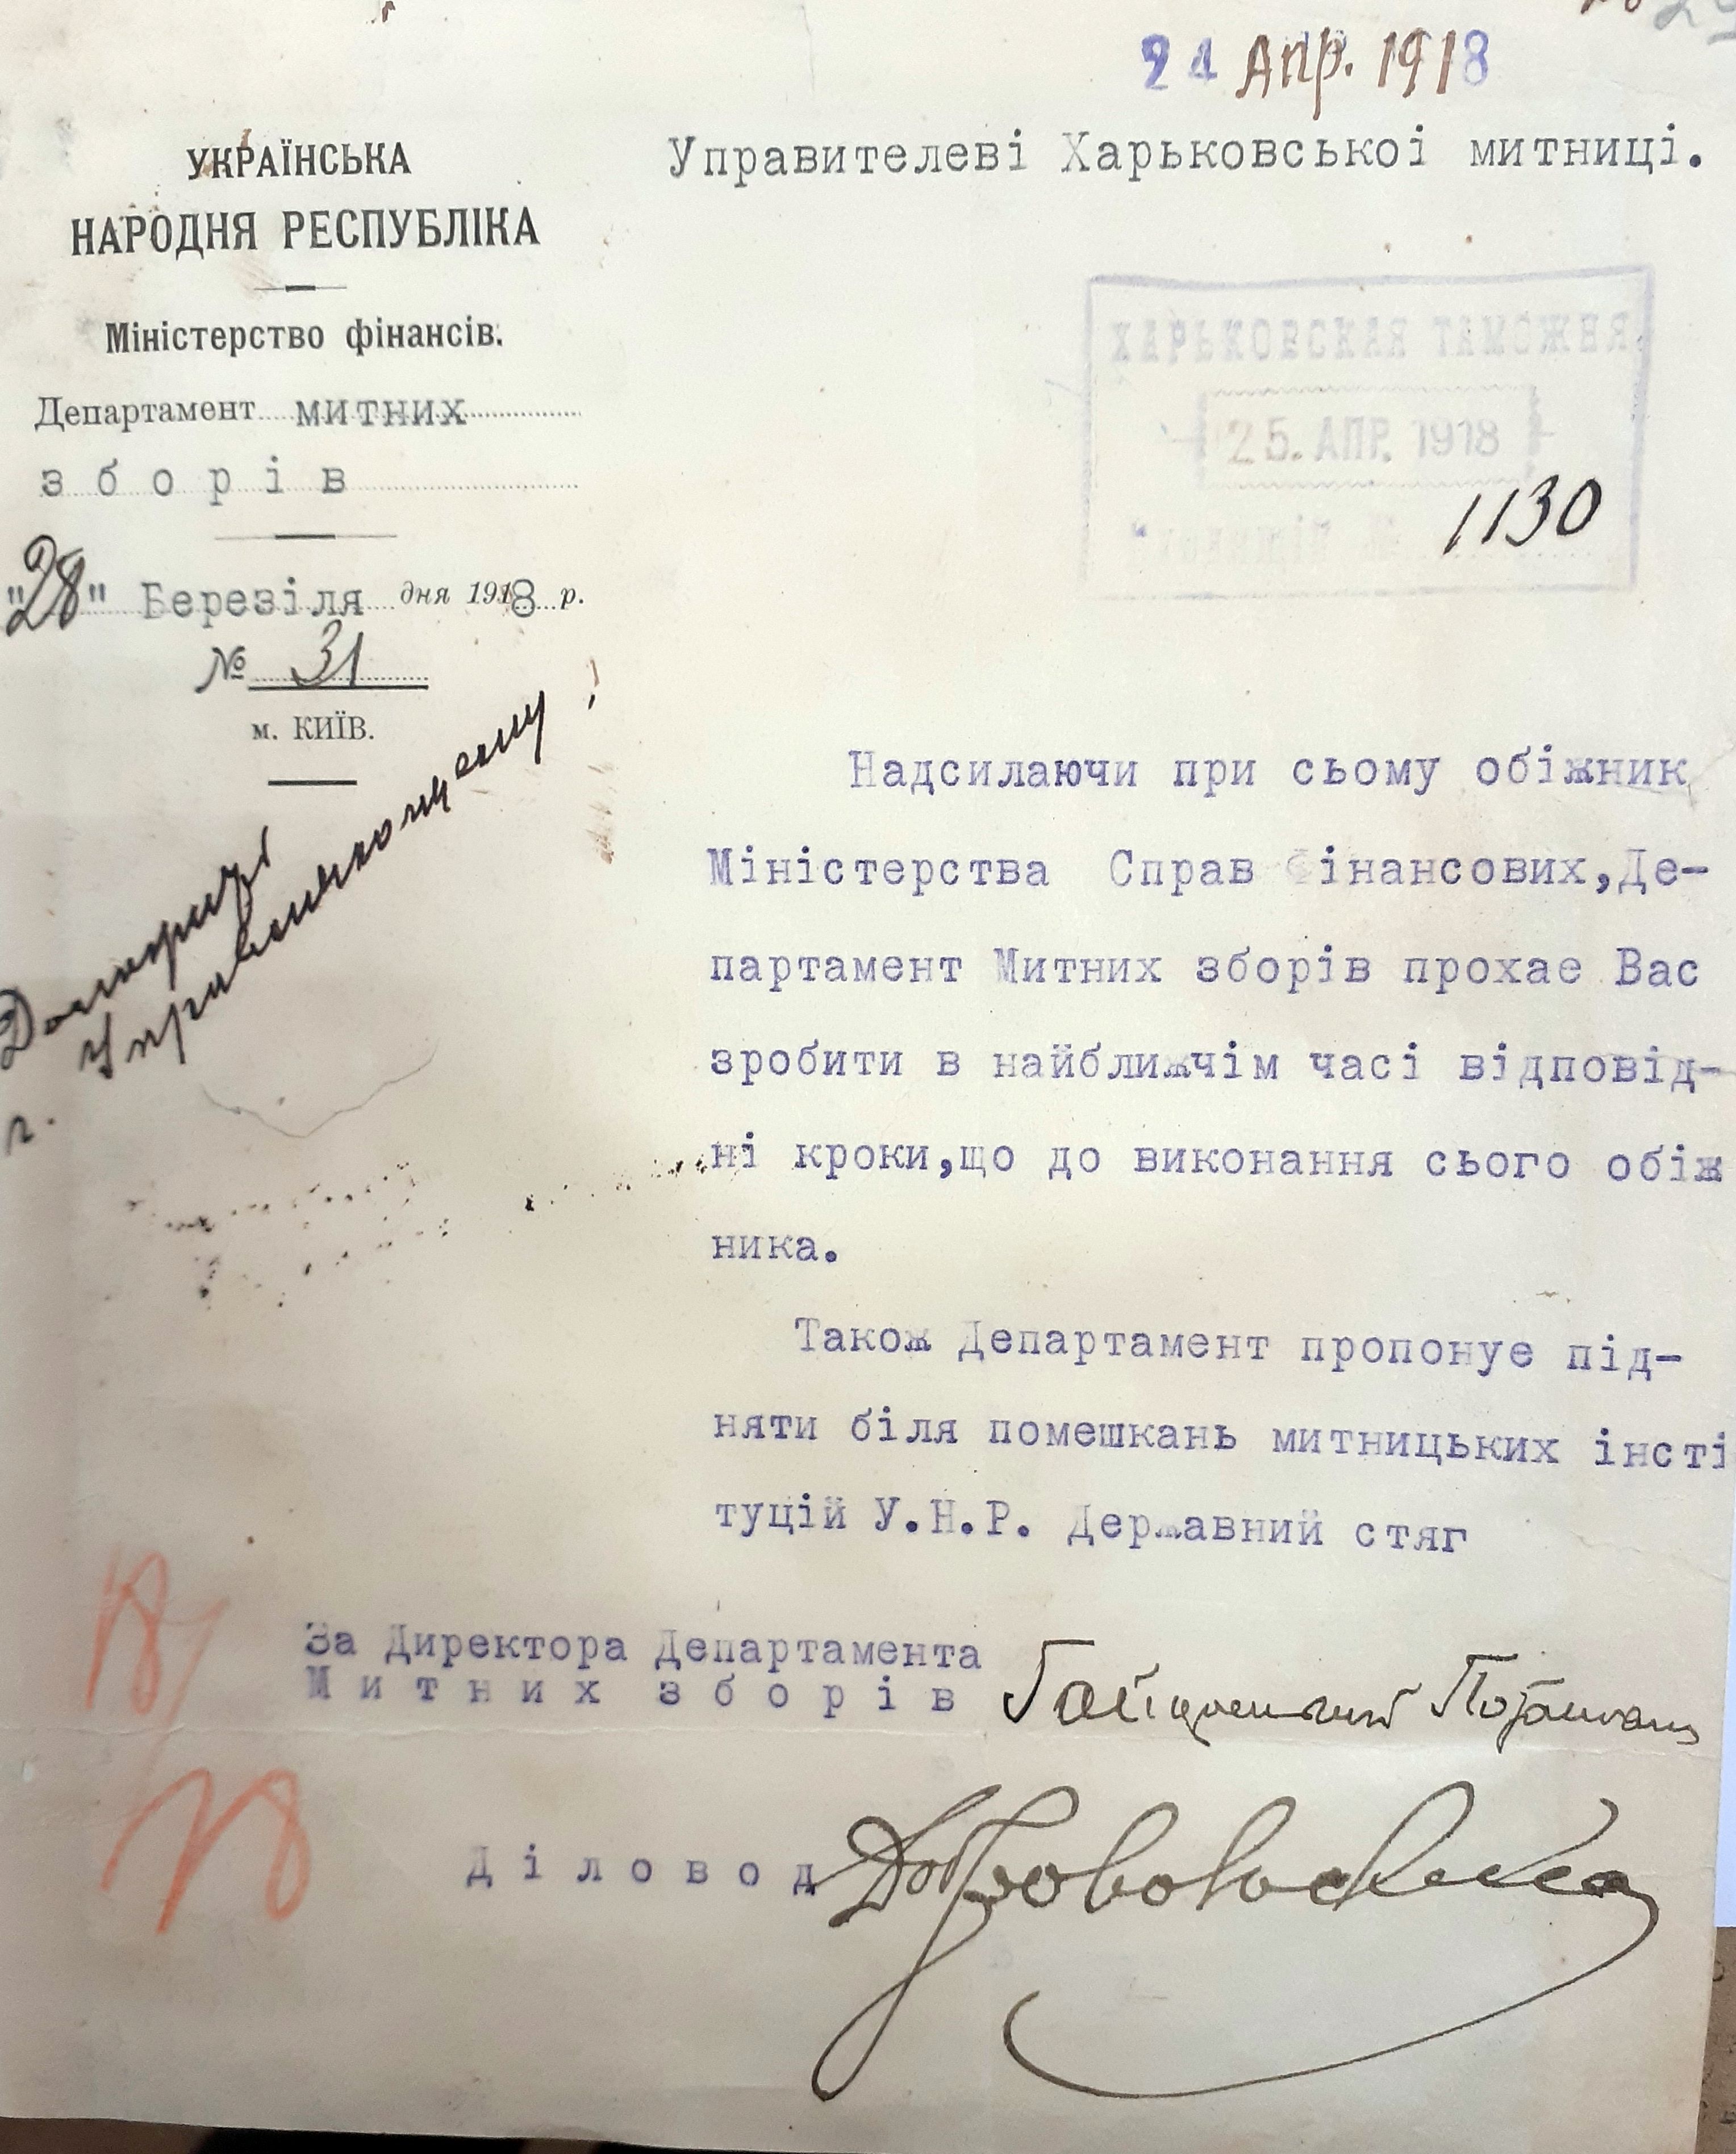 24 Апр. 1918
УКРАЇНСЬКА
НАРОДНЯ РЕСПУБЛІКА
Міністерство фінансів.
Департамент митних
зборів
"28" Березіля дня 1918 р.
№ 31
м. КИЇВ.
Управителеві Харьковськоі митниці.
ХАРЬКОВСКАЯ ТАМОЖНЯ
25. АПР. 1918
1130
Надсилаючи при сьому обіжник
Міністерства Справ Фінансових,Де-
партамент Митних зборів прохае Вас
зробити в найближчім часі відповід-
ні кроки,що до виконання сього обіж
ника.
Також Департамент пропонуе під-
няти біля помешкань митницьких інсті
туцій У.Н.Р. Державний стяг
За Директора Департамента
Митних зборів
Діловод